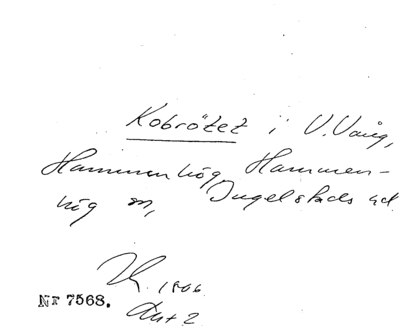 Kobrötet i V. Vång,
Hammenhög, Hammen-
hög sn, Ingelstads hd.
1806
Akt 2
Nr 7568.